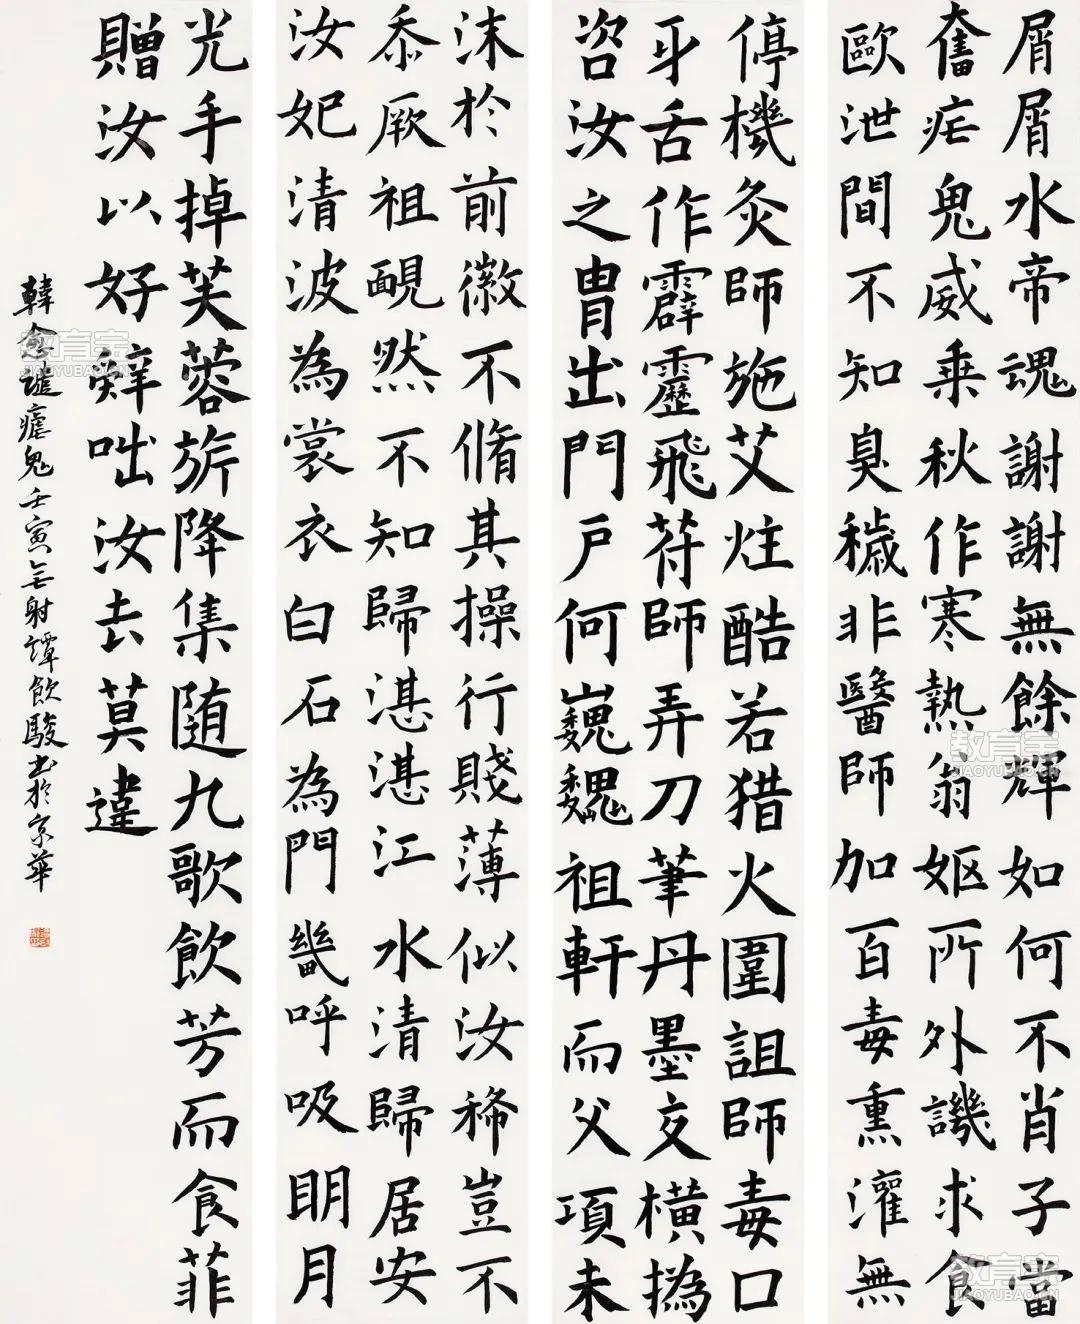 屑屑水帝魂謝謝無餘輝如何不肖子當
奮疟鬼威乘秋作寒熱翁妪所外譏求食
歐泄間不知臭穢非醫師加百毒熏灌無
停機灸師施艾炷酷若猎火圍詛師毒口
牙舌作霹靂飛符師弄刀筆丹墨交橫撝
咨汝之胄出門戶何巍巍祖軒而父頊未
沫於前徽不脩其操行賤薄似汝稀豈不
忝厥祖靦然不知歸湛湛江水清歸居安
汝妃清波為裳衣白石為門畿呼吸明月
光手掉芙蓉旂降集随九歌飲芳而食菲
贈汝以好辤咄汝去莫違
韓愈譴瘧鬼壬寅無射譚飲駿书於京華
教育宝
JIAOYUBAO.CN
教育宝
JIAOYUBAO.CN
教育宝
JIAOYUBAO.CN